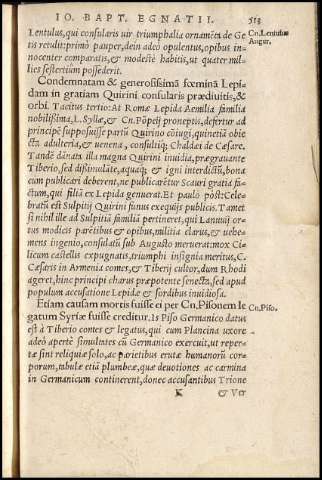 IO. BAPT. EGNATII. 513
Lentulus, qui consularis uir triumphalia ornamēta de Ge
tis retulit: primò pauper, dein adeò opulentus, opibus in-
nocenter comparatis, & modestè habitis, ut quater mil-
lies sestertiûm possederit.
Cn. Lentulus
Augur.
Condemnatam & generosissimā fœminā Lepi-
dam in gratiam Quirini consularis prædiuitis, &
orbi. Tacitus tertio: At Romæ Lepida Aemilia familia
nobilissima, L. Syllæ, & Cn. Pōpeij proneptis, defertur ad
principē supposuisse partū Quirino cōiugi, quinetiā obie
cta adulteria, & uenena, consultiq; Chaldæi de Cæsare.
Tandē dānata illa magna Quirini inuidia, prægrauante
Tiberio, sed dissimulāte, aquaq; & igni interdictū, bona
cum publicari deberent, ne publicarētur Scauri gratia fa-
ctum, qui filiā ex Lepida genuerat. Et paulò pòst: Cele-
bratū est Sulpitij Quirini funus exequijs publicis. Tamet
si nihil ille ad Sulpitiā familiā pertineret, qui Lanuuij or-
tus modicis parētibus & opibus, militia clarus, & uehe-
mens ingenio, consulatū sub Augusto meruerat: mox Ci-
licum castellis expugnatis, triumphi insignia meritus, C.
Cæsaris in Armenia comes, & Tiberij cultor, dum Rhodi
ageret, hinc principi charus præpotente senecta, sed apud
populum accusatione Lepidæ & sordibus inuidiosa.
Etiam causam mortis fuisse ei per Cn. Pisonem le
gatum Syriæ fuisse creditur. Is Piso Germanico datus
est à Tiberio comes & legatus, qui cum Plancina uxore
adeò apertè simultates cū Germanico exercuit, ut reper-
tæ sint reliquiæ solo, ac parietibus erutæ humanorū cor-
porum, tabulæ etiā plumbeæ, quæ deuotiones ac carmina
in Germanicum continerent, donec accusantibus Trione
Cn. Piso.
K & Ver